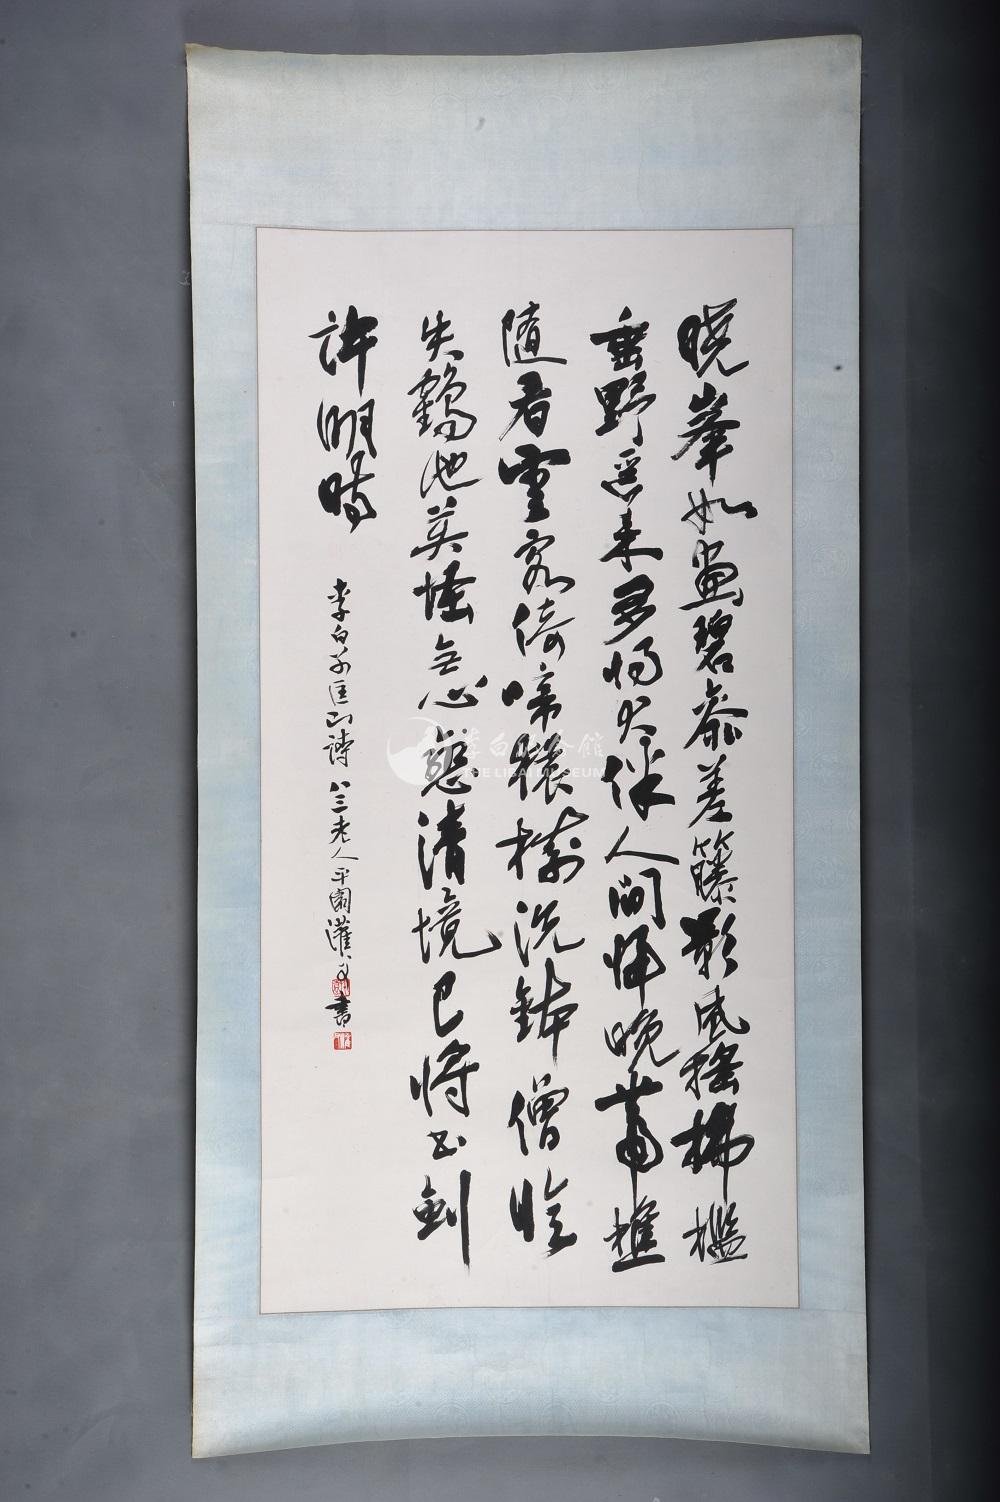 曉峯如畫碧參差籐影風搖拂檻
垂野徑來多將犬伴人間歸晚帶樵
隨看雲客倚啼猿樹洗鉢僧臨
失鶴池莫怪無心戀清境已將書劍
許明時
李白別匡山詩 八三老人平園灌 書
李白纪念馆
THE LIBAI MUSEUM